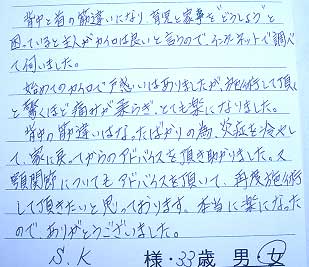 背中と首の筋違いになり、育児と家事を"どうしよう"と
困っていると主人がカイロは良いと言うので、インターネットで調べ
て伺いました。
始めてのカイロで戸惑いはありましたが、施術して頂く
と驚くほど痛みが柔らぎ、とても楽になりました。
背中の筋違いはなったばかりの為、炎症を冷やし
て、家に戻ってからのアドバイスを頂き助かりました。又
顎関節についてもアドバイスを頂いて、再度施術
して頂きたいと思っております。本当に楽になった
ので、ありがとうございました。
S.K 様・33歳 男・女